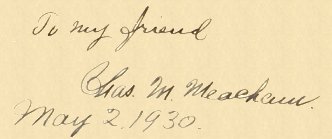 To my friend
Chas. M. Meacham.
May 2. 1930.